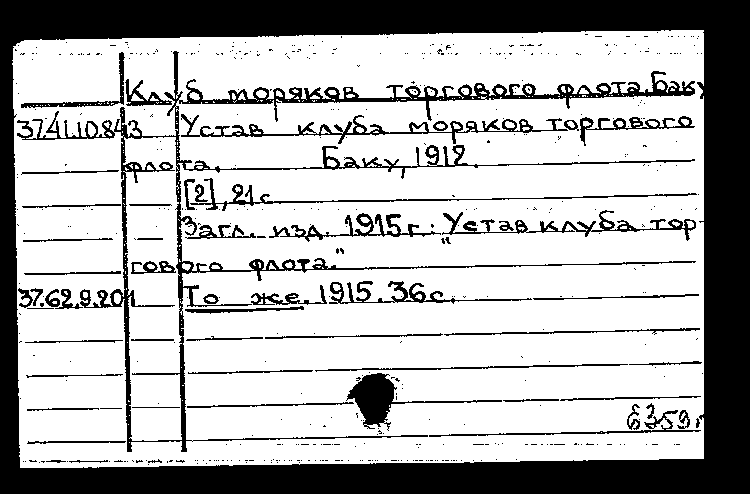 Клуб моряков торгового флота. Баку
37.41.10.843 Устав клуба моряков торгового
флота. Баку, 1912.
[2], 21 с.
Загл. изд. 1915 г.: "Устав клуба тор-
гового флота."
37.62.9.201 То же. 1915. 36 с.